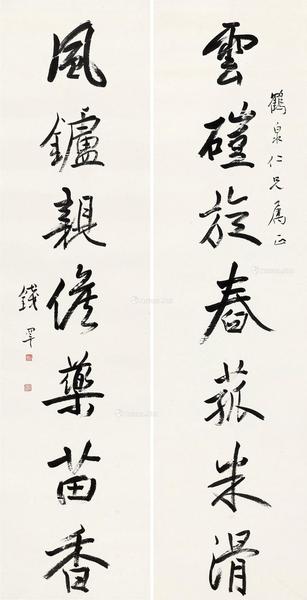 雲磑旋舂菰米滑
鶴泉仁兄屬正
風鑪親藥苗香
錢罕